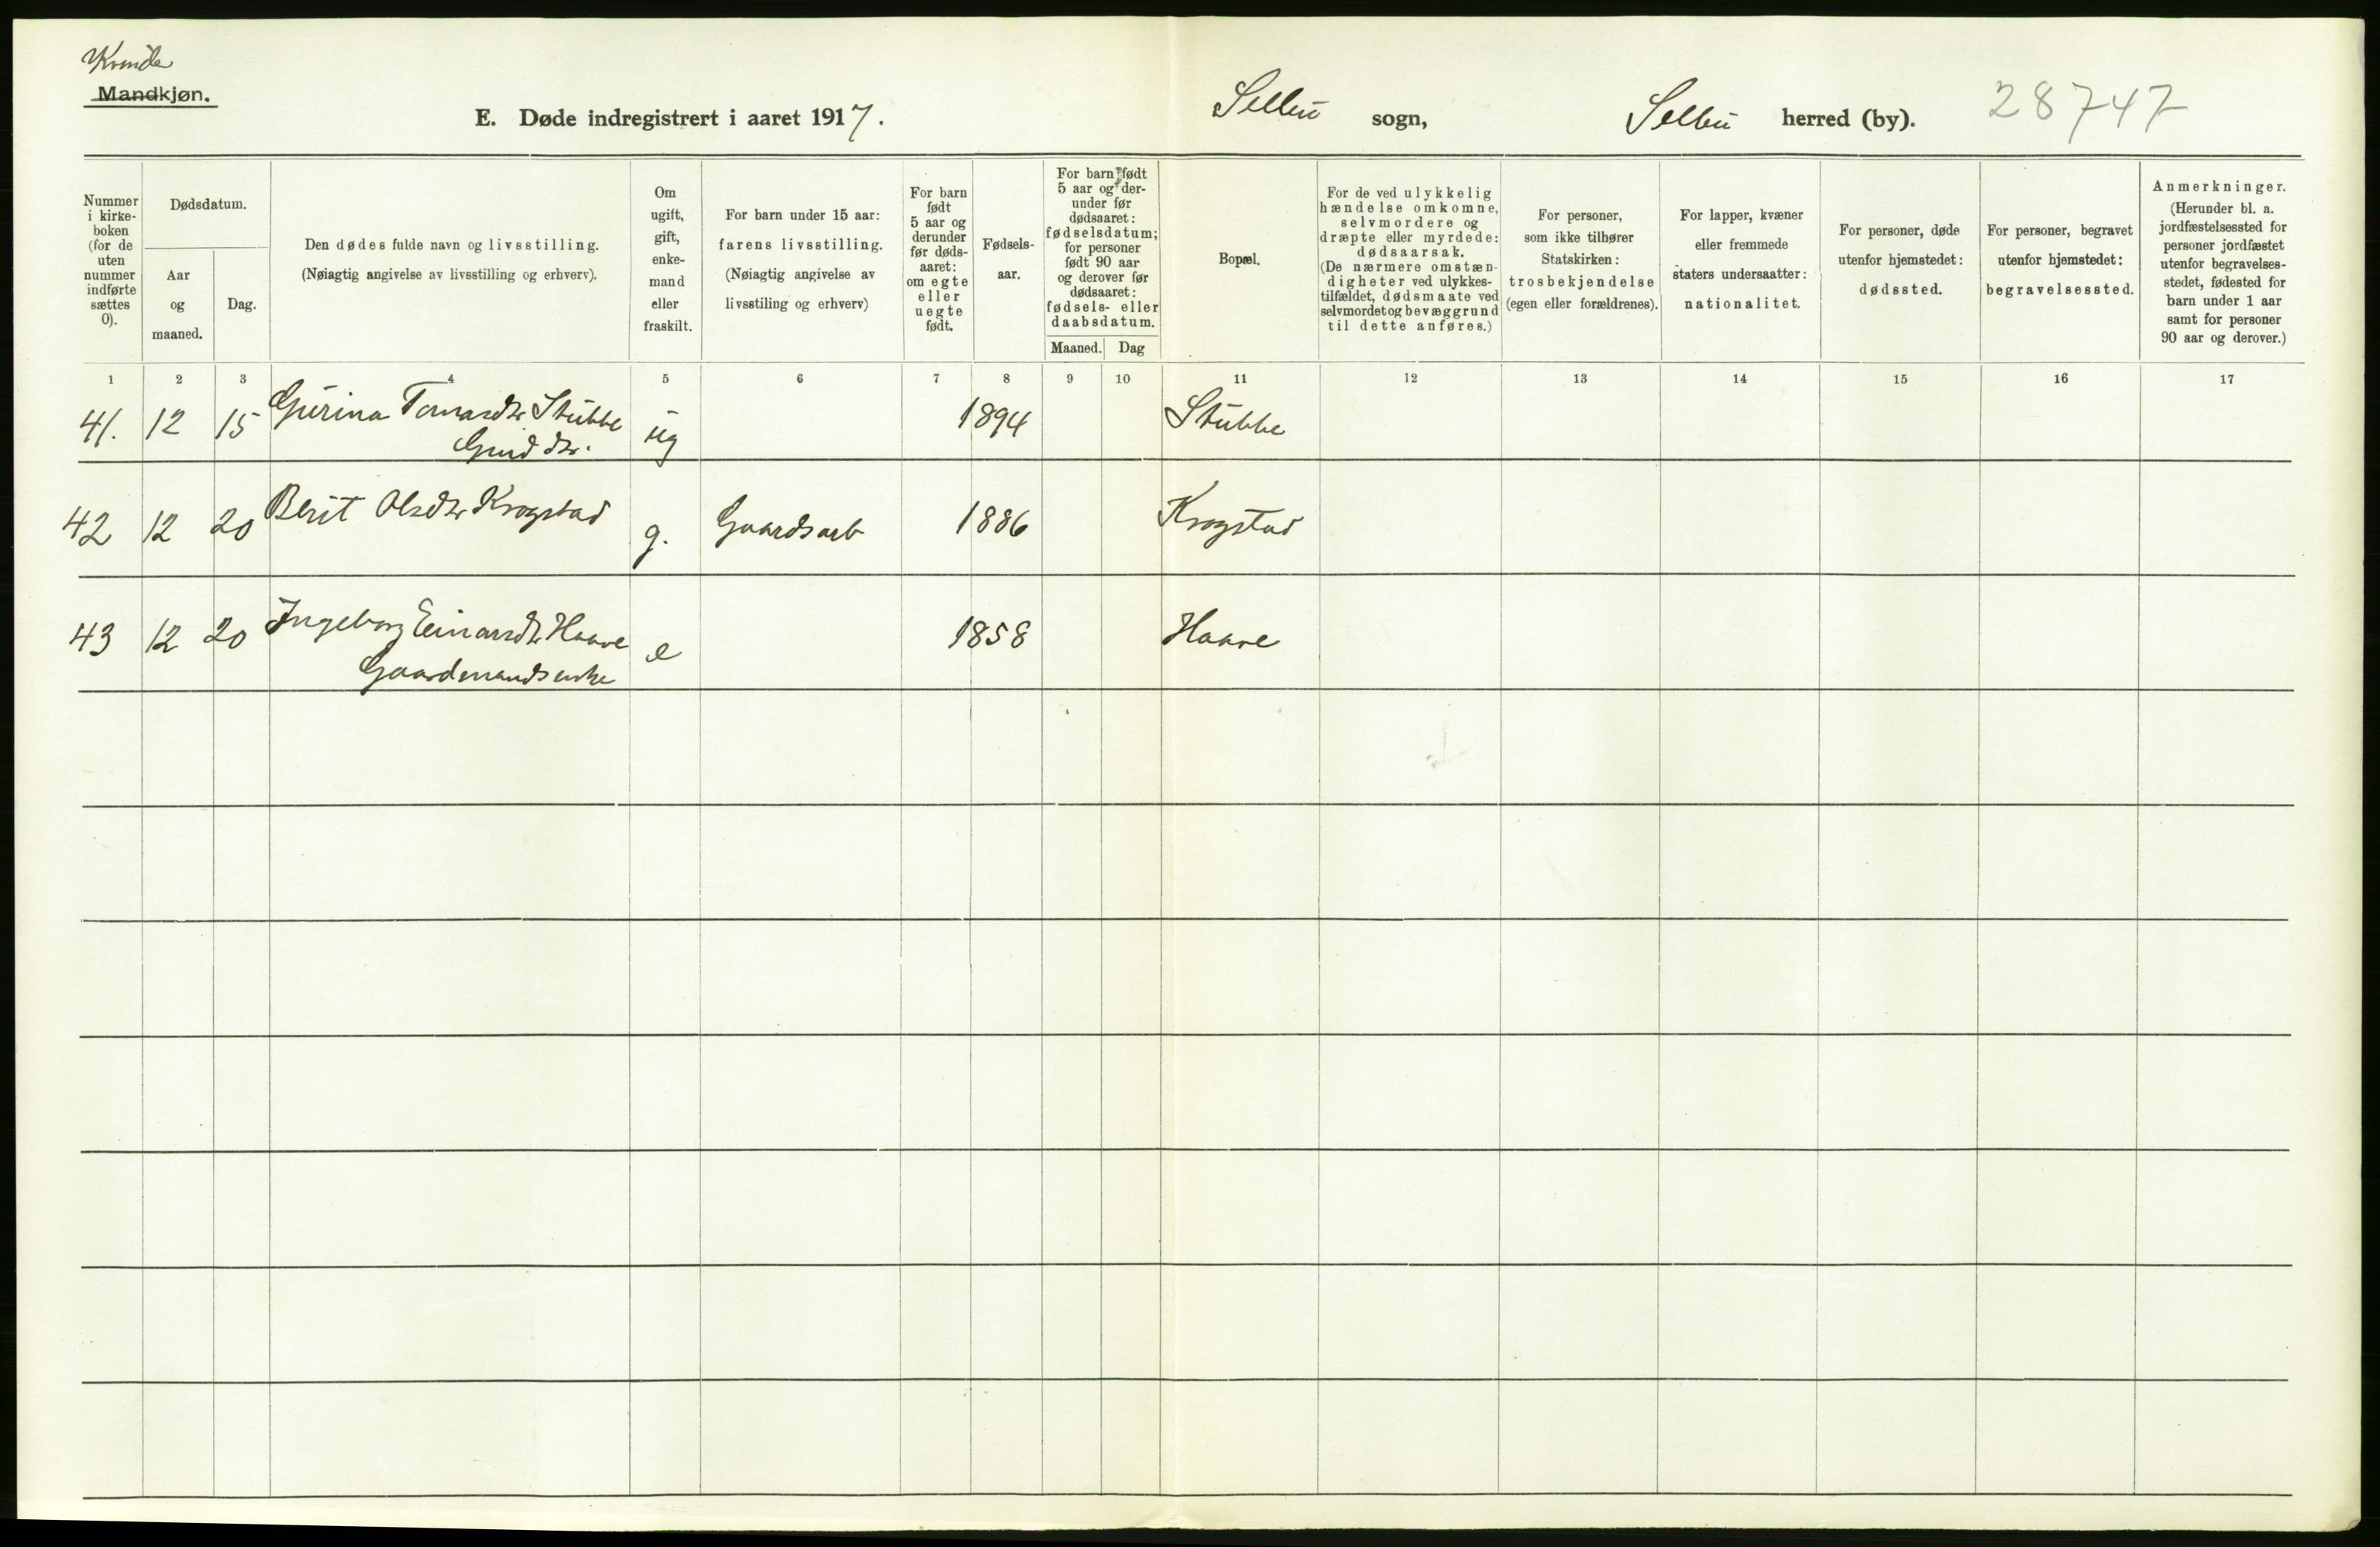 Kvinde
Mandkjøn.
E. Døde indregistrert i aaret 1917.
Selbu sogn,
Selbu herred (by).
28747
Nummer
i kirke-
boken
(for de
uten
nummer
indførte
sættes
0).
Dødsdatum.
Aar
og
maaned.
Dag.
Den dødes fulde navn og livsstilling.
(Nøiagtig angivelse av livsstilling og erhverv).
Om
ugift,
gift,
enke-
mand
eller
fraskilt.
For barn under 15 aar:
farens livsstilling.
(Nøiagtig angivelse av
livsstiling og erhverv)
For barn
født
5 aar og
derunder
før døds-
aaret:
om egte
eller
uegte
født.
Fødsels-
aar.
For barn født
5 aar og der-
under før
dødsaaret:
fødselsdatum;
for personer
født 90 aar
og derover før
dødsaaret:
fødsels- eller
daabsdatum.
Maaned. Dag
Bopæl.
For de ved ulykkelig
hændelse omkomne,
selvmordere og
dræpte eller myrdede:
dødsaarsak.
(De nærmere omstæn-
digheter ved ulykkes-
tilfældet, dødsmaate ved
selvmordet og bevæggrund
til dette anføres.)
For personer,
som ikke tilhører
Statskirken:
trosbekjendelse
(egen eller forældrenes).
For lapper, kvæner
eller fremmede
staters undersaatter:
nationalitet.
For personer, døde
utenfor hjemstedet:
dødssted.
For personer, begravet
utenfor hjemstedet:
begravelsessted.
Anmerkninger.
(Herunder bl. a.
jordfæstelsessted for
personer jordfæstet
utenfor begravelses-
stedet, fødested for
barn under 1 aar
samt for personer
90 aar og derover.)
1 2 3 4 5 6 7 8 9 10 11 12 13 14 15 16 17
41. 12 15 Gurina Tomasdtr Stubbe ug 1894 Stubbe
dtr.
42 12 20 Berit Olsdtr Krogstad g. Gaardsarb 1886 Krogstad
43 12 20 Ingeborg Einarsdtr Haave e 1858 Haave
Gaardmandsenke